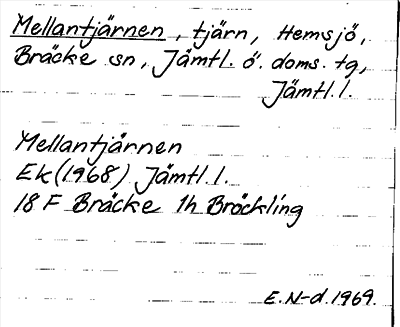 Mellantjärnen, tjärn, Hemsjö,
Bräcke sn, Jämtl. ö. doms. tg,
Jämtl. l.
Mellantjärnen
Ek (1968) Jämtl. l.
18 F Bräcke 1h Bröckling
E. N-d. 1969.